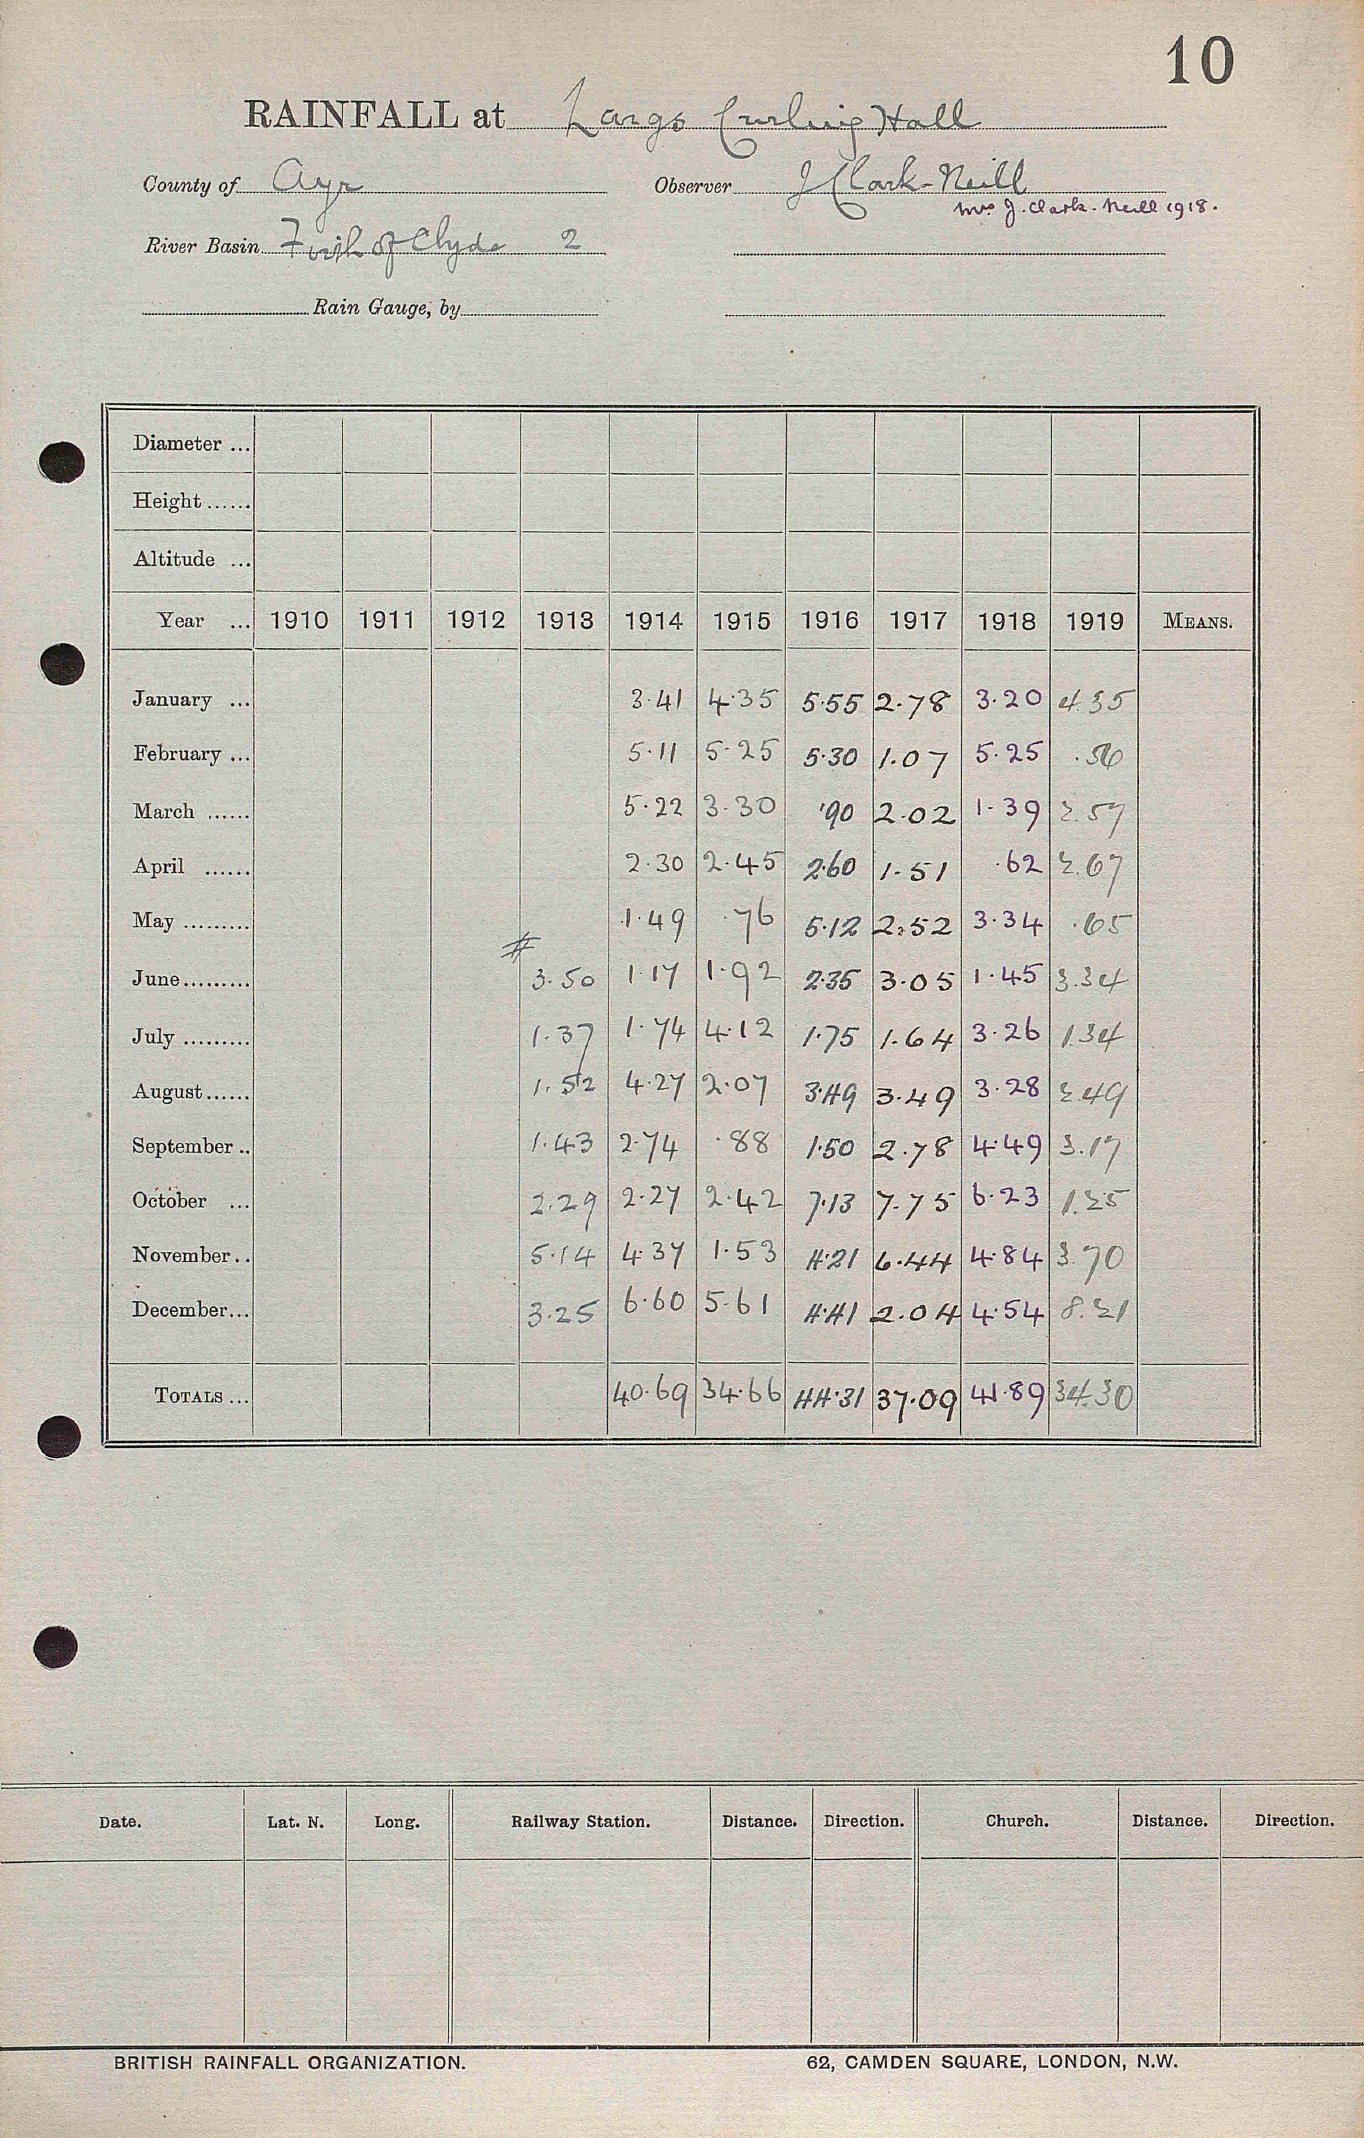 10
RAINFALL at Largs Curling Hall
County of Ayr Observer J Clark-Neill
Mrs J. Clark-Neill 1918.
River Basin Firth of Clyde 2
Rain Gauge, by
Diameter ...
Height ......
Altitude ...
Year ... 1910 1911 1912 1913 1914 1915 1916 1917 1918 1919 MEANS.
January ... 3.41 4.35 5.55 2.78 3.20 4.35
February ... 5.11 5.25 5.30 1.07 5.25 .56
March ...... 5.22 3.30 .90 2.02 1.39 2.57
April ...... 2.30 2.45 2.60 1.51 .62 2.67
May ......... 1.49 .76 5.12 2.52 3.34 .65
#
June ......... 3.50 1.17 1.92 2.35 3.05 1.45 3.34
July ......... 1.37 1.74 4.12 1.75 1.64 3.26 1.34
August ...... 1.52 4.27 2.07 3.49 3.49 3.28 2.49
September .. 1.43 2.74 .88 1.50 2.78 4.49 3.17
October ... 2.29 2.27 2.42 7.13 7.75 6.23 1.25
November .. 5.14 4.37 1.53 4.21 6.44 4.84 3.70
December ... 3.25 6.60 5.61 4.41 2.04 4.54 8.21
TOTALS ... 40.69 34.66 44.31 37.09 41.89 34.30
Date. Lat. N. Long. Railway Station. Distance. Direction. Church. Distance. Direction.
BRITISH RAINFALL ORGANIZATION. 62, CAMDEN SQUARE, LONDON, N.W.